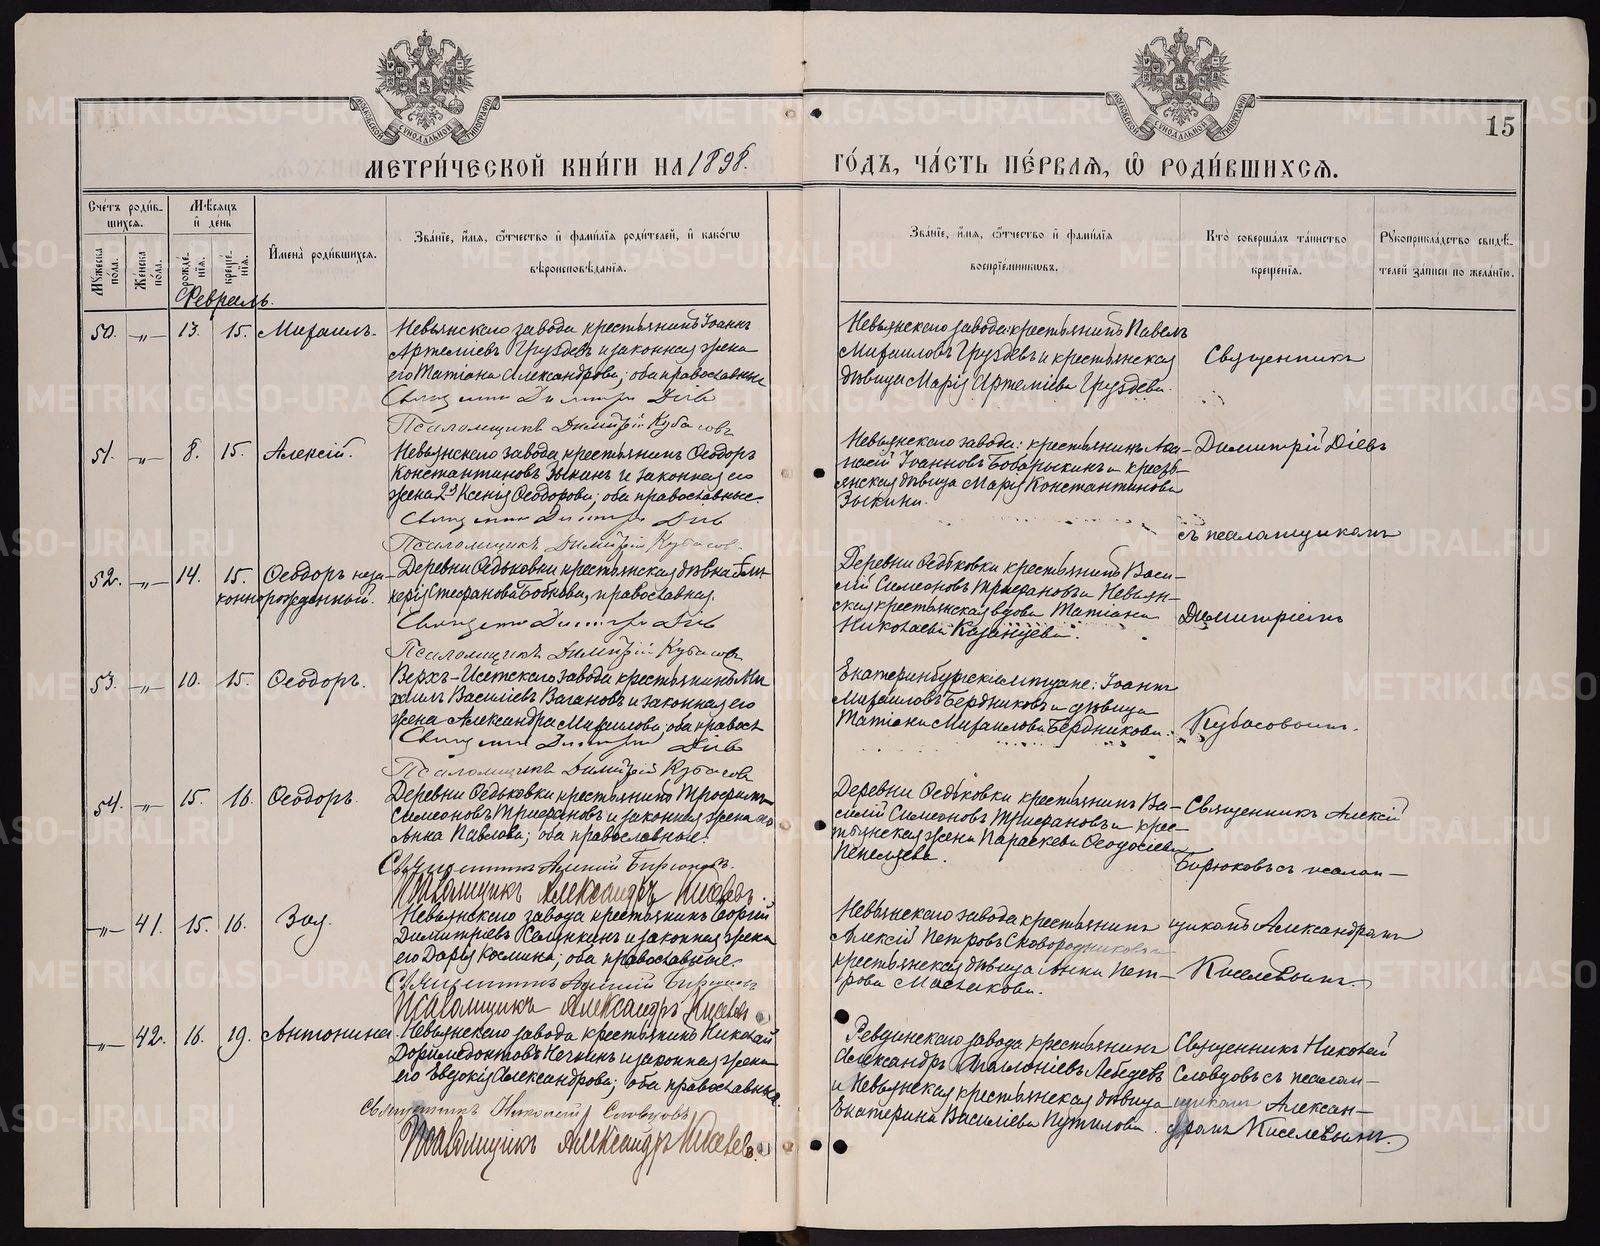 МОСКОВСКОЙ СѴНОДАЛЬНОЙ ТИПОГРАФІИ
МОСКОВСКОЙ СѴНОДАЛЬНОЙ ТИПОГРАФІИ
15
МЕТРИ́ЧЕСКОЙ КНИ́ГИ НА 1898.
ГО́ДЪ, ЧА́СТЬ ПЕ́РВАѦ, Ѡ РОДИ́ВШИХСѦ.
Сче́тъ роди́в-
шихсѧ.
Мꙋ́жеска по́ла.
Же́нска по́ла.
Мѣ́сѧцъ и҆ де́нь
рожде́нїѧ.
креще́нїѧ.
И҆мена̀ роди́вшихсѧ.
Зва́нїе, и҆́мѧ, ѻ҆́тчество и҆ фами́лїѧ роди́телей, и҆ како́гѡ
вѣроисповѣ́данїѧ.
Зва́нїе, и҆́мѧ, ѻ҆́тчество и҆ фами́лїѧ
воспрїе́мникѡвъ.
Кто̀ соверша́лъ та́инство
креще́нїѧ.
Рꙋкоприкла́дство свидѣ́-
телей за́писи по жела́нїю.
Февраль.
50. —„— 13. 15. Михаилъ.
Невьянскаго завода крестьянинъ Іоаннъ
Артеміевъ Груздевъ и законная жена
его Татіана Александрова; оба православные
Священникъ Димитрій Діевъ
Псаломщикъ Димитрій Кубасовъ
Невьянскаго завода: крестьянинъ Павелъ
Михаиловъ Груздевъ и крестьянская
дѣвица Марія Артеміева Груздева.
Священникъ
51. —„— 8. 15. Алексій.
Невьянскаго завода крестьянинъ Ѳеодоръ
Константиновъ Зыкинъ и законная его
жена 2я Ксенія Ѳеодорова; оба православные.
Священникъ Димитрій Діевъ
Псаломщикъ Димитрій Кубасовъ.
Невьянскаго завода: крестьянинъ Аѳа-
насій Іоанновъ Бобарыкинъ и кресть-
янская дѣвица Марія Константинова
Зыкина.
Димитрій Діевъ
съ псаломщикомъ
52. —„— 14. 15. Ѳеодоръ неза-
коннорожденный.
Деревни Ѳедьковки крестьянская дѣвка Гли-
керія Стефанова Бобкова, православная.
Священникъ Димитрій Діевъ
Псаломщикъ Димитрій Кубасовъ
Деревни Ѳедьковки крестьянинъ Васи-
лій Симеоновъ Трифановъ и Невьян-
ская крестьянская вдова Татіана
Николаева Казанцева.
Димитріемъ
53. —„— 10. 15. Ѳеодоръ.
Верхъ-Исетскаго завода крестьянинъ Ми-
хаилъ Василіевъ Вагановъ и законная его
жена Александра Михаилова; оба правосл.
Священникъ Димитрій Діевъ
Псаломщикъ Димитрій Кубасовъ
Екатеринбургскіе мѣщане: Іоаннъ
Михаиловъ Бердниковъ и дѣвица
Татіана Михаилова Бердникова.
Кубасовымъ.
54. —„— 15. 16. Ѳеодоръ.
Деревни Ѳедьковки крестьянинъ Трофимъ
Симеоновъ Трифановъ и законная жена его
Анна Павлова; оба православные.
Священникъ Алексій Бирюковъ.
Псаломщикъ Александръ Киселевъ.
Деревни Ѳедьковки крестьянинъ Ва-
силій Симеоновъ Трифановъ и крес-
тьянская жена Параскева Ѳеодосіева
Пенелѣева.
Священникъ Алексій
Бирюковъ съ псалом-
—„— 41. 15. 16. Зоя.
Невьянскаго завода крестьянинъ Георгій
Димитріевъ Селянкинъ и законная жена
его Дарія Космина; оба православные.
Священникъ Алексій Бирюковъ
Псаломщикъ Александръ Киселевъ
Невьянскаго завода крестьянинъ
Алексій Петровъ Сковородниковъ и
крестьянская дѣвица Анна Пет-
рова Маслакова.
щикомъ Александромъ
Киселевымъ.
—„— 42. 16. 19. Антонина.
Невьянскаго завода крестьянинъ Николай
Доримедонтовъ Нечкинъ и законная жена
его Евдокія Александрова; оба православные.
Священникъ Николай Словцовъ
Псаломщикъ Александръ Киселевъ.
Ревдинскаго завода крестьянинъ
Александръ Аполлоніевъ Лебедевъ
и Невьянская крестьянская дѣвица
Екатерина Василіева Путилова.
Священникъ Николай
Словцовъ съ псалом-
щикомъ Алексан-
дромъ Киселевымъ.